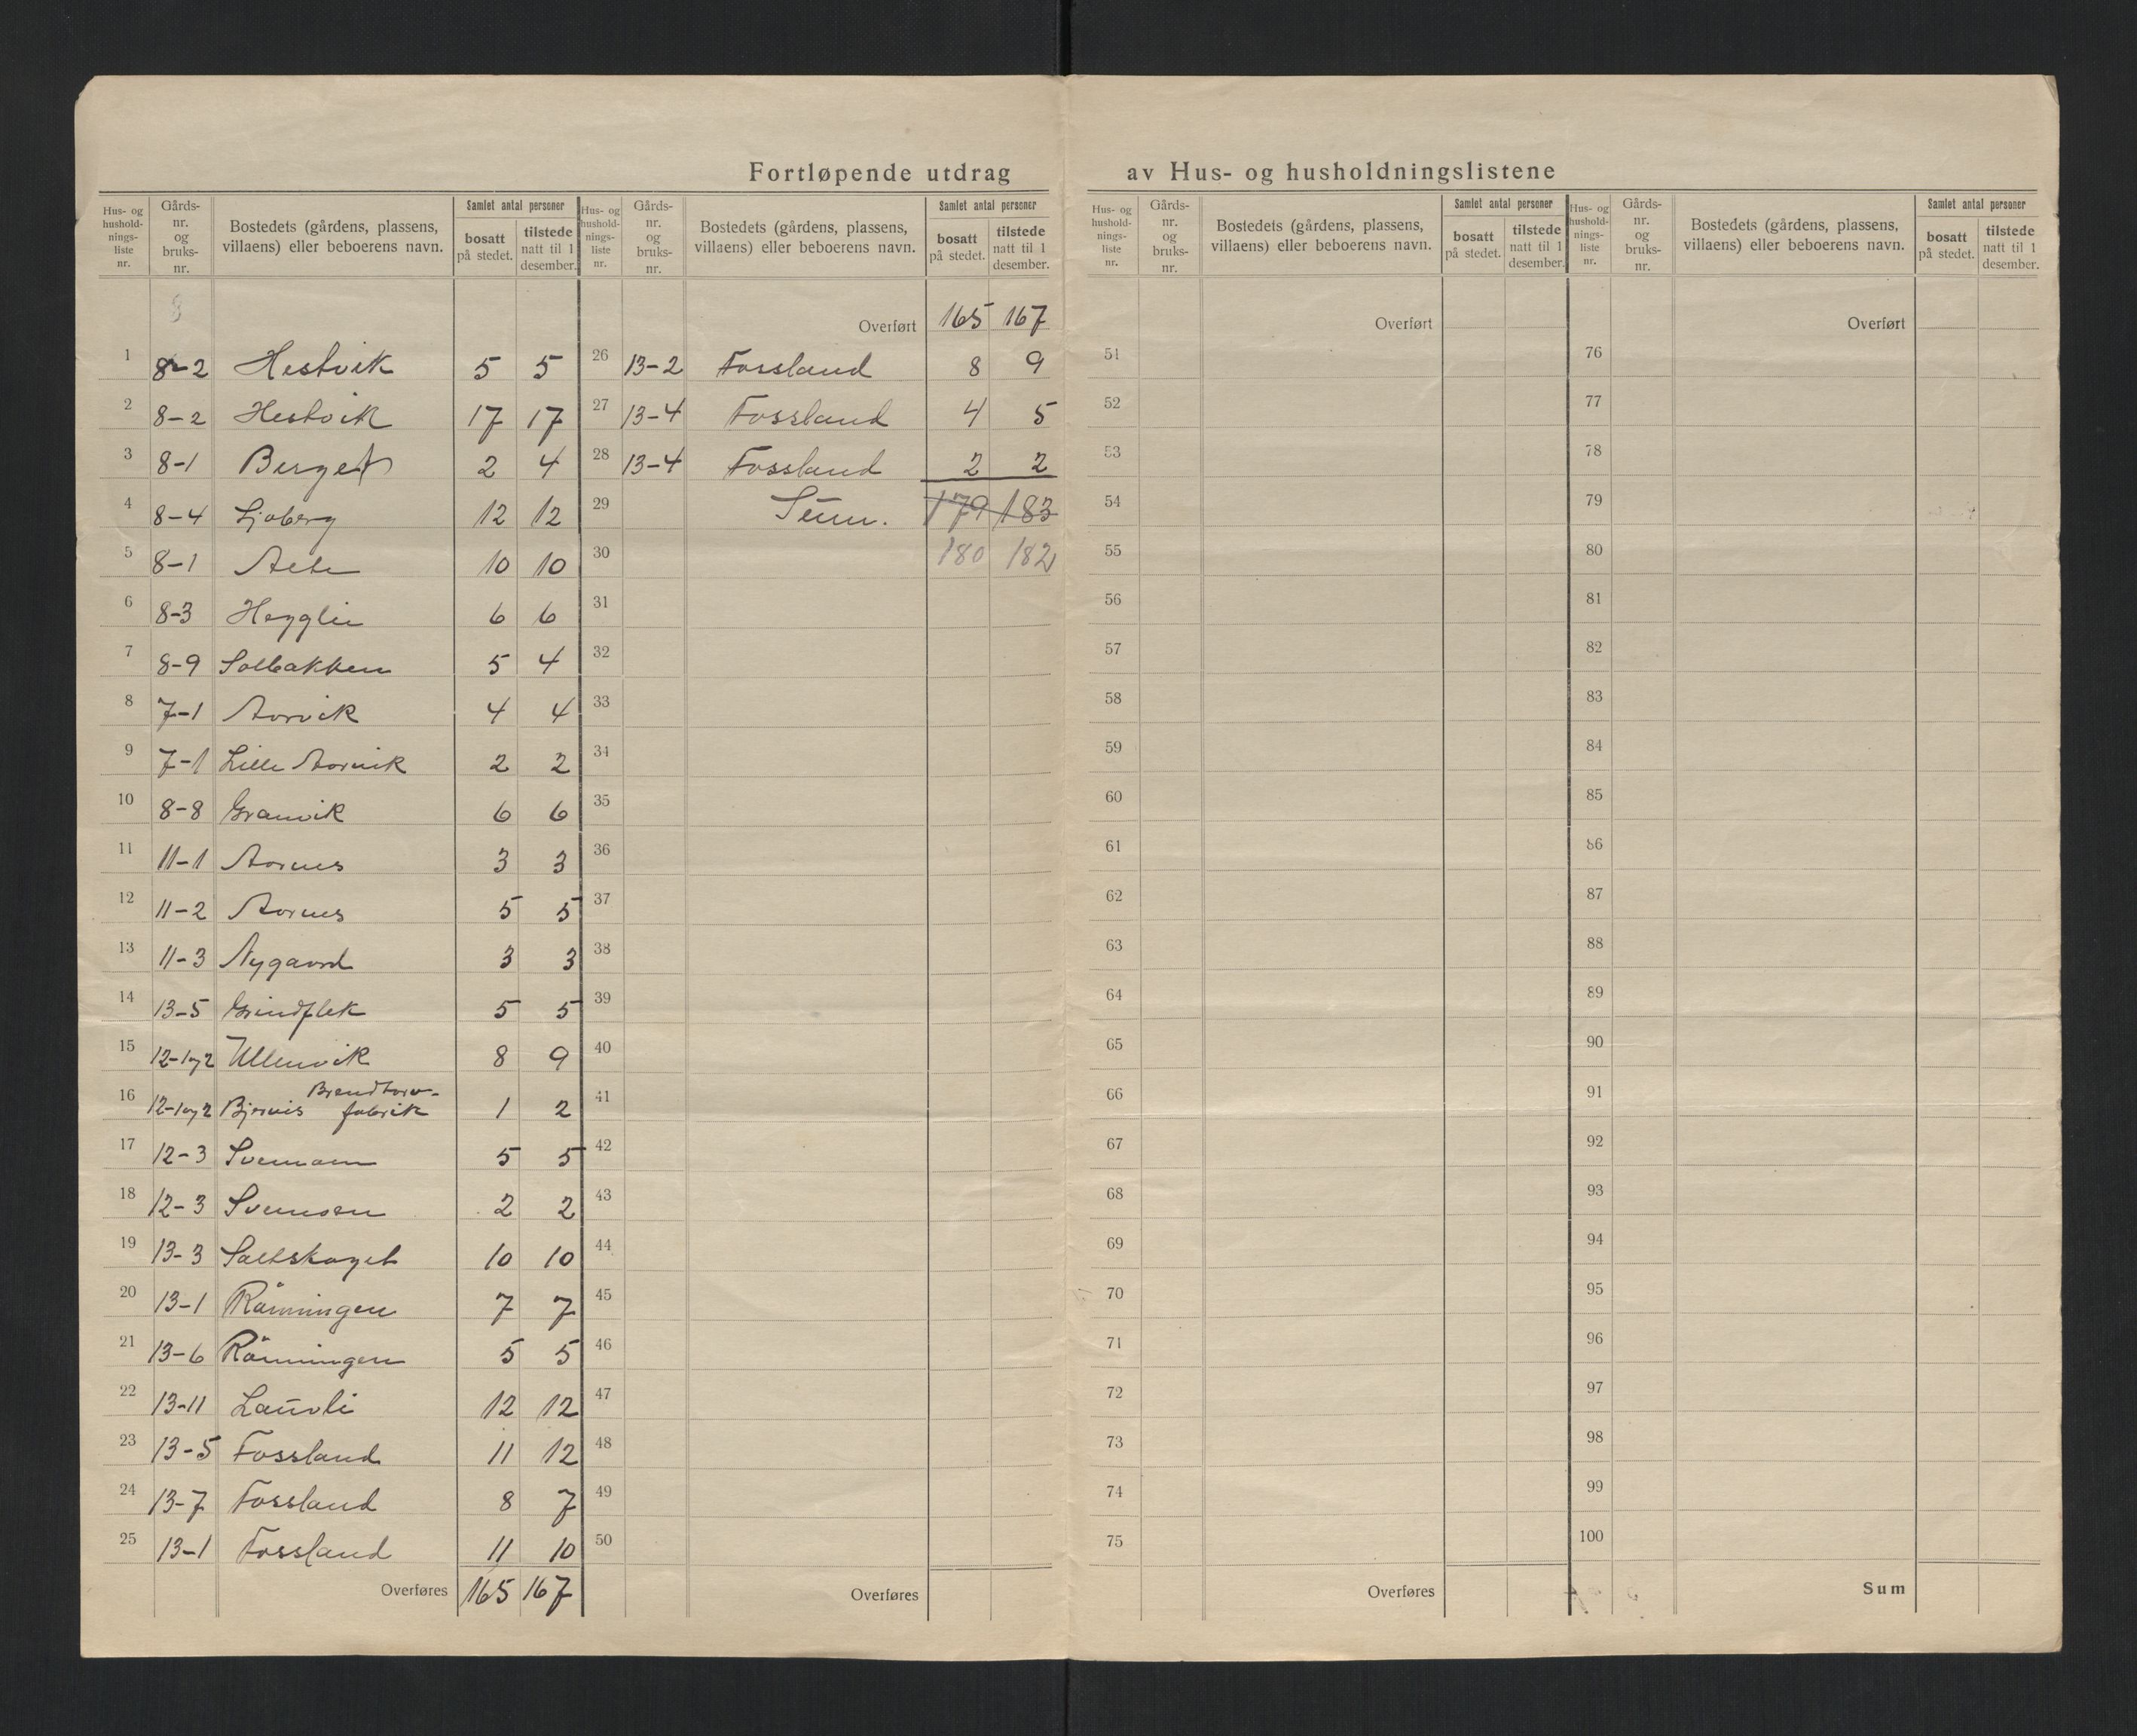 Fortløpende utdrag av Hus- og husholdningslistene
Hus- og hushold-nings-liste nr. Gårds-nr. og bruks-nr. Bostedets (gårdens, plassens, villaens) eller beboerens navn. Samlet antal personer bosatt på stedet. tilstede natt til 1 desember.
8
1 8-2 Hestvik 5 5
2 8-2 Hestvik 17 17
3 8-1 Berget 2 4
4 8-4 Sjøberg 12 12
5 8-1 10 10
6 8-3 Hegglie 6 6
7 8-9 Solbakken 5 4
8 7-1 Aorvik 4 4
9 7-1 Lille Aorvik 2 2
10 8-8 Granvik 6 6
11 11-1 Aornes 3 3
12 11-2 Aornes 5 5
13 11-3 Nygaord 3 3
14 13-5 Grindflek 5 5
15 12-1og2 Ullenvik 8 9
16 12-1og2 Bjørnis Brendtorv-fabrik 1 2
17 12-3 Svemoen 5 5
18 12-3 Svemoen 2 2
19 13-3 Saltskoget 10 10
20 13-1 Rönningen 7 7
21 13-6 Rönningen 5 5
22 13-11 Lauvli 12 12
23 13-5 Fossland 11 12
24 13-7 Fossland 8 7
25 13-1 Fossland 11 10
Overføres 165 167
Hus- og hushold-nings-liste nr. Gårds-nr. og bruks-nr. Bostedets (gårdens, plassens, villaens) eller beboerens navn. Samlet antal personer bosatt på stedet. tilstede natt til 1 desember.
Overført 165 167
26 13-2 Fossland 8 9
27 13-4 Fossland 4 5
28 13-4 Fossland 2 2
29 Sum. 179 183
30 180 182
31
32
33
34
35
36
37
38
39
40
41
42
43
44
45
46
47
48
49
50
Overføres
Hus- og hushold-nings-liste nr. Gårds-nr. og bruks-nr. Bostedets (gårdens, plassens, villaens) eller beboerens navn. Samlet antal personer bosatt på stedet. tilstede natt til 1 desember.
Overført
51
52
53
54
55
56
57
58
59
60
61
62
63
64
65
66
67
68
69
70
71
72
73
74
75
Overføres
Hus- og hushold-nings-liste nr. Gårds-nr. og bruks-nr. Bostedets (gårdens, plassens, villaens) eller beboerens navn. Samlet antal personer bosatt på stedet. tilstede natt til 1 desember.
Overført
76
77
78
79
80
81
82
83
84
85
86
87
88
89
90
91
92
93
94
95
96
97
98
99
100
Sum